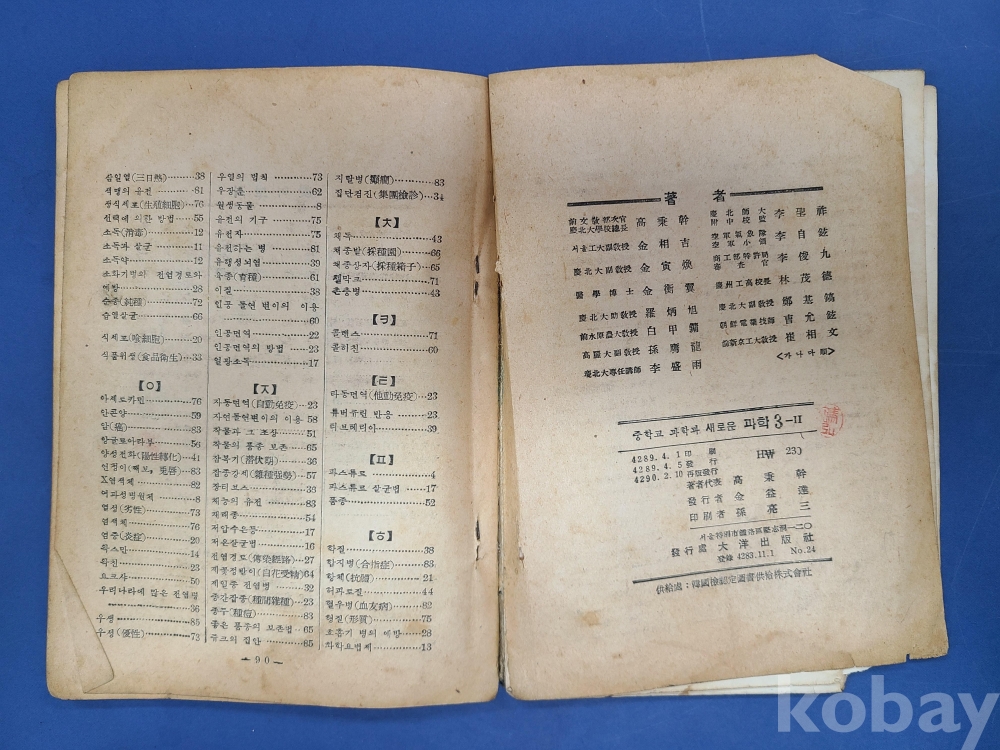 삼일열(三日熱)……38
색맹의 유전……81
생식세포(生殖細胞)……76
선택에 의한 방법……55
소독(消毒)……12
소독과 살균……11
소독약……12
소화기병의 전염경로와
예방……28
순종(純種)……72
습열살균……16
식세포(喰細胞)……20
식품위생(食品衛生)……33
【ㅇ】
아세로카민……76
안콘양……59
암(癌)……83
앙굴로아라부……56
양성전화(陽性轉化)……41
언청이(째보, 兎唇)……83
X염색체……82
여과성병원체……8
열성(劣性)……73
염색체……76
염증(炎症)……20
왁스만……14
왁찐……23
요크샤……50
우리나라에 많은 전염병
……36
우생……85
우성(優性)……73
우열의 법칙……73
우장춘……62
원생동물……8
유전의 기구……75
유전자……75
유전하는 병……81
유행성뇌염……39
육종(育種)……51
이질……38
인공 돌연 변이의 이용
……60
인공면역……22
인공면역의 방법……23
일광소독……17
【ㅈ】
자동면역(自動免疫)……23
자연돌연변이의 이용……58
작물과 그 조상……51
작물의 품종 보존……65
잠복기(潛伏期)……36
잡종강세(雜種强勢)……57
장티브스……36
재능의 유전……83
재래종……54
저압수은등……17
저온살균법……16
전염경로(傳染經路)……27
제꽃정받이(自花受精)64
제일종 전염병……32
종간잡종(種間雜種)……23
종두(種痘)……83
좋은 품종의 보존법……65
쥬크의 집안……85
지랄병(癲癎)……83
집단검진(集團檢診)……34
【ㅊ】
채독……43
채종밭(採種園)……66
채종상자(採種箱子)……65
첼막크……71
촌충병……43
【ㅋ】
콜렌스……71
콜히친……60
【ㅌ】
타동면역(他動免疫)……23
튜버큐린 반응……39
티브헤리아……39
【ㅍ】
파스튜르……4
파스튜르 살균법……17
품종……52
【ㅎ】
학질……38
합지증(合指症)……83
항체(抗體)……21
허파로질……44
혈우병(血友病)……82
형질(形質)……75
호흡기 병의 예방……28
화학요법제……13
— 90 —
著者
前文敎部次官 慶北大學校總長 高秉幹
서울工大副敎授 金相吉
慶北大副敎授 金寅煥
醫學博士 金衡翼
慶北大助敎授 羅炳旭
前水原農大敎授 白甲鏞
高麗大副敎授 孫膺龍
慶北大專任講師 李盛雨
慶北師大附中校監 李聖祚
空軍氣象隊 空軍小領 李自鉉
商工部特許局 審査官 李俊九
慶州工高校長 林茂德
慶北大副敎授 鄭基鎬
朝鮮電業技師 曺允鉉
前新京工大敎授 崔相文
<가나다順>
중학교 과학과 새로운 과학 3—II
4289. 4. 1 印刷
4289. 4. 5 發行
4290. 2. 10 再版發行
HW 230
著者代表 高秉幹
發行者 金益達
印刷者 孫亮三
서울特別市鍾路區堅志洞一二〇
發行處 大洋出版社
登錄 4283.11.1 No.24
供給處：韓國檢認定圖書供給株式會社
kobay